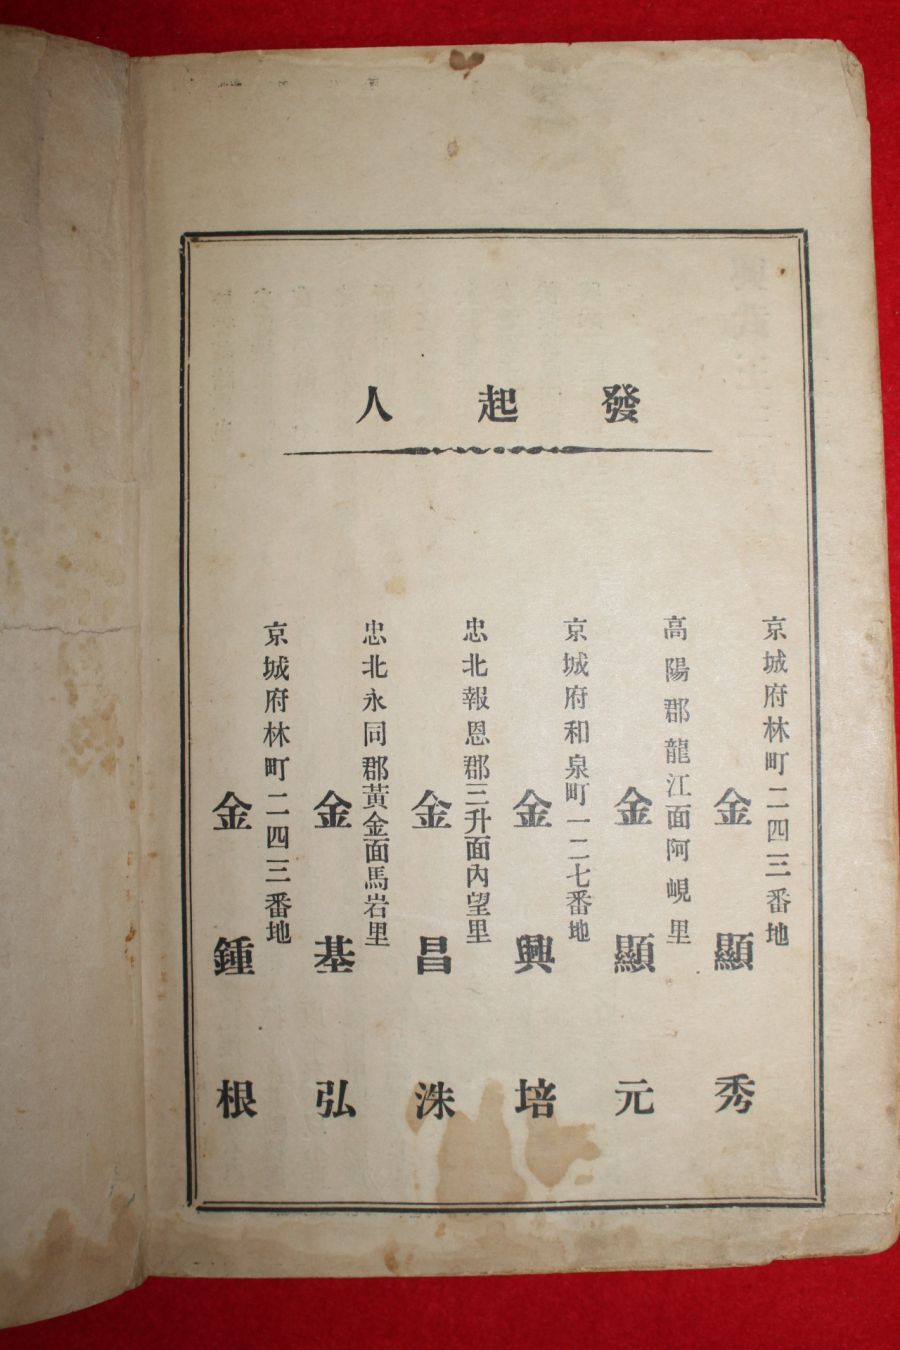 發起人
京城府林町二四三番地
金顯秀
高陽郡龍江面阿峴里
金顯元
京城府和泉町一二七番地
金興培
忠北報恩郡三升面內望里
金昌洙
忠北永同郡黃金面馬岩里
金基弘
京城府林町二四三番地
金鍾根